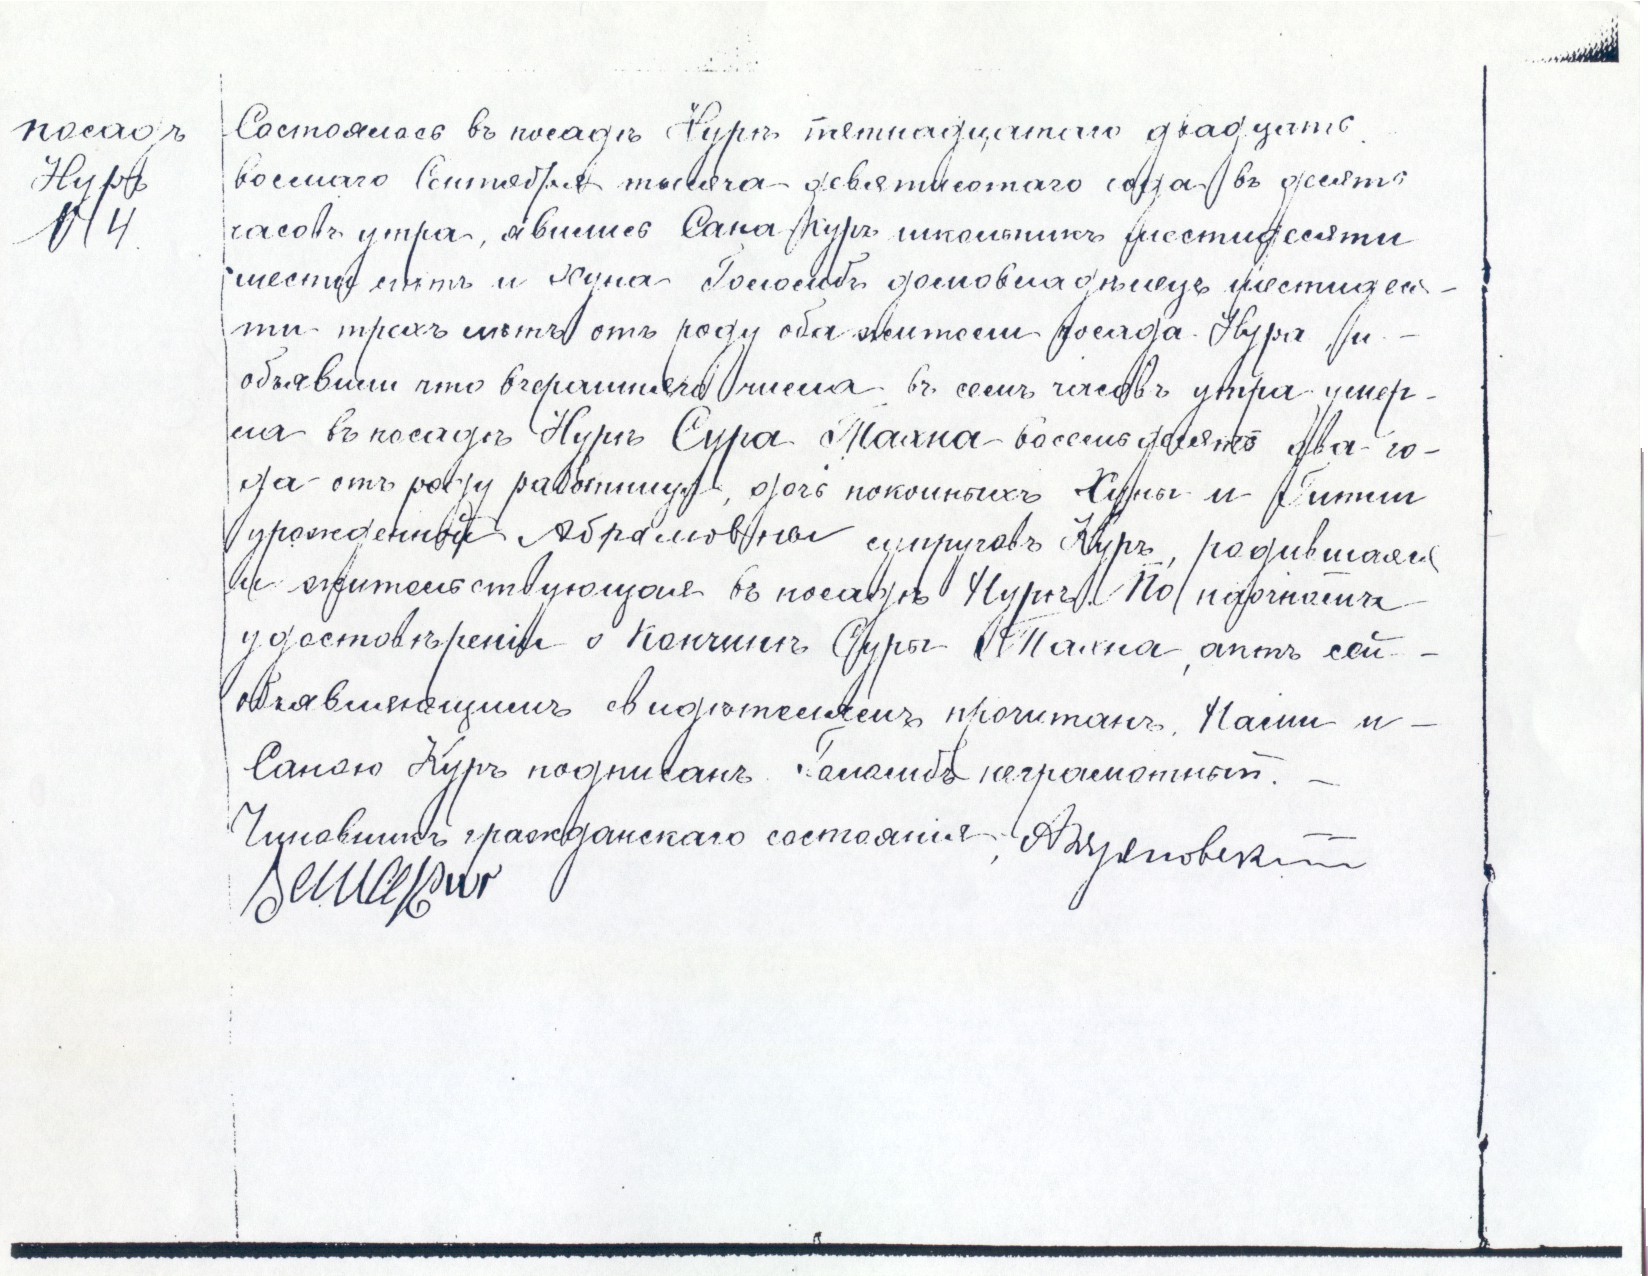 посадъ
Нуръ
N 4
Состоялось въ посадѣ Нурѣ пятнадцатаго двадцать
восмаго Сентября тысяча девятисотаго года въ десять
часовъ утра, явились Сана Куръ школьникъ шестидесяти
шести лѣтъ и Хуна Голомбъ домовладѣлецъ шестидеся-
ти трехъ лѣтъ отъ роду оба жители посада Нура, и -
объявили что вчерашняго числа въ семь часовъ утра умер-
ла въ посадѣ Нурѣ Сура Тахна восемьдесятъ два го-
да отъ роду работница, дочь покойныхъ Хуны и
урожденной Абрамовны супруговъ Куръ, родившаяся
и жительствующая въ посадѣ Нурѣ. По
удостовѣреніи о кончинѣ Суры Тахна, актъ сей -
объявляющимъ свидѣтелямъ прочитанъ, Нами и -
Саною Куръ подписанъ. Голомбъ неграмотный. -
Чиновникъ гражданскаго состоянія,